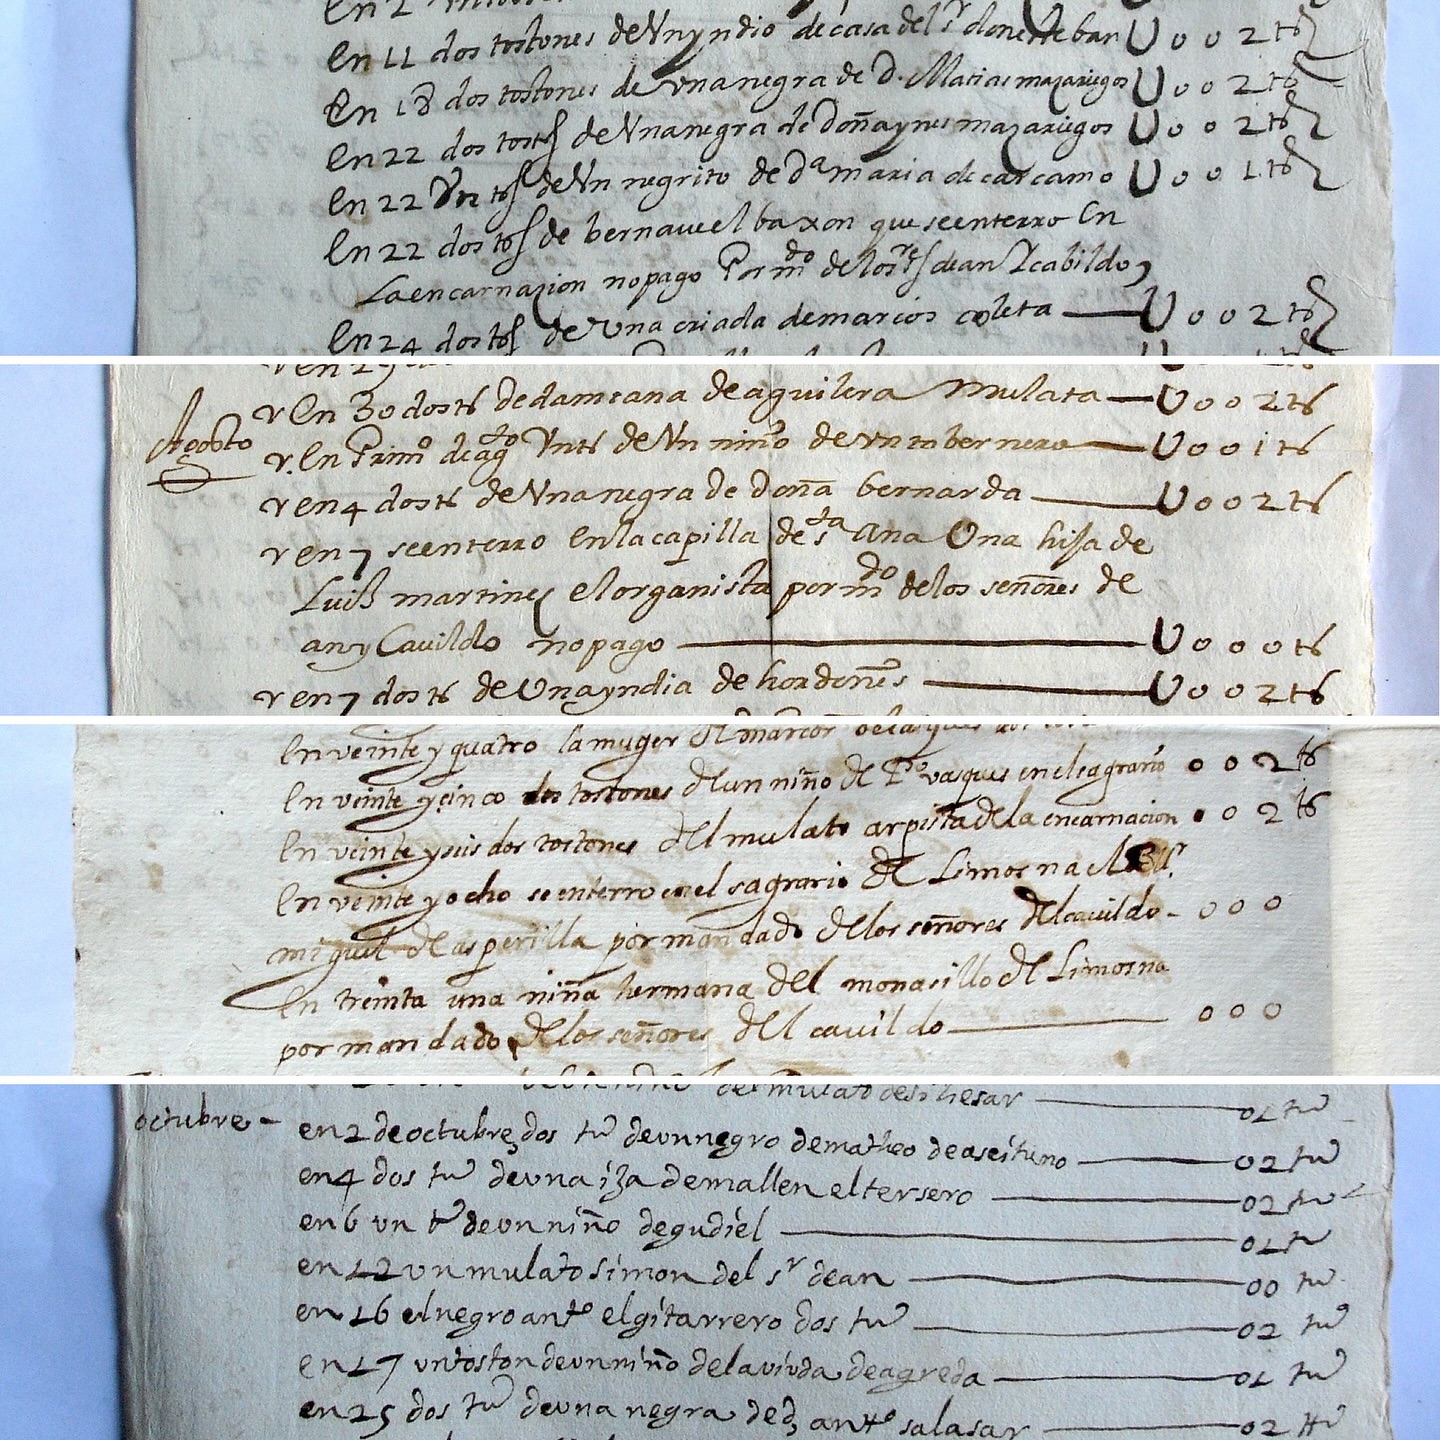 En 11 dos tostones de Vn yndio de casa del sr don esteban U 0 0 2 ts
En 18 dos tostones de vna negra de D. Matias mazariegos U 0 0 2 ts
En 22 dos tosts de Vna negra de Doña ynes mazariegos U 0 0 2 ts
En 22 Vn ts de Vn negrito de Da maria de carcamo U 0 0 1 ts
En 22 dos ts de bernaue el baxon que se enterro En
La encarnazion no pago Por mdo de los res dean I cabildo
En 24 dos ts de Vna criada de marcos coleta U 0 0 2 ts
Agosto
v En 30 dos ts de dameana de aguilera Mulata U 0 0 2 ts
v. En Primo de agto Vn ts de Vn niño de vn tabernero U 0 0 1 ts
v en 4 dos ts de Vna negra de Doña bernarda U 0 0 2 ts
v en 7 se enterro En la capilla de sta Ana Vna hija de
Luis martines el organista por mdo de los señores de
an y Cauildo no pago U 0 0 0 ts
v en 7 dos ts de Vna yndia de hordoñes U 0 0 2 ts
En veinte y quatro la muger de marcos velasques dos
En veinte y çinco dos tostones de un niño de Po vasques en el sagrario 0 0 2 ts
En veinte y seis dos tostones del mulato arpista de la encarnacion 0 0 2 ts
En veinte y ocho se enterro en el sagrario de Limosna
miguel de asperilla por mandado de los señores del cauildo - 0 0 0
En treinta una niña hermana del monasillo de Limosna
por mandado de los señores del cauildo 0 0 0
del mulato
octubre -
en 2 de octubre dos ts de vn negro de matheo de aseituno 02 ts
en 4 dos ts de vna ija de mallen el tersero 02 ts
en 6 vn ts de vn niño de gudiel 01 ts
en 12 vn mulato simon del sr dean 00 ts
en 16 el negro anto el gitarrero dos ts 02 ts
en 17 vn toston de vn niño de la viuda de agreda 01 ts
en 25 dos ts de vna negra de d anto salasar 02 ts